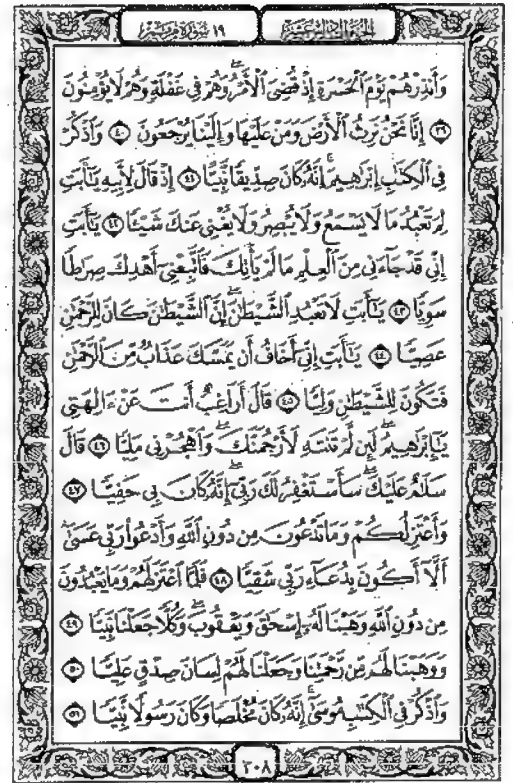 ١٩ سورة مريم
الجزء السادس عشر
وَأَنذِرْهُمْ يَوْمَ ٱلْحَسْرَةِ إِذْ قُضِيَ ٱلْأَمْرُ وَهُمْ فِي غَفْلَةٍ وَهُمْ لَا يُؤْمِنُونَ
٣٩ إِنَّا نَحْنُ نَرِثُ ٱلْأَرْضَ وَمَنْ عَلَيْهَا وَإِلَيْنَا يُرْجَعُونَ ٤٠ وَٱذْكُرْ
فِي ٱلْكِتَٰبِ إِبْرَٰهِيمَ ۚ إِنَّهُۥ كَانَ صِدِّيقًا نَّبِيًّا ٤١ إِذْ قَالَ لِأَبِيهِ يَٰٓأَبَتِ
لِمَ تَعْبُدُ مَا لَا يَسْمَعُ وَلَا يُبْصِرُ وَلَا يُغْنِي عَنكَ شَيْـًٔا ٤٢ يَٰٓأَبَتِ
إِنِّي قَدْ جَآءَنِي مِنَ ٱلْعِلْمِ مَا لَمْ يَأْتِكَ فَٱتَّبِعْنِيٓ أَهْدِكَ صِرَٰطًا
سَوِيًّا ٤٣ يَٰٓأَبَتِ لَا تَعْبُدِ ٱلشَّيْطَٰنَ ۖ إِنَّ ٱلشَّيْطَٰنَ كَانَ لِلرَّحْمَٰنِ
عَصِيًّا ٤٤ يَٰٓأَبَتِ إِنِّيٓ أَخَافُ أَن يَمَسَّكَ عَذَابٌ مِّنَ ٱلرَّحْمَٰنِ
فَتَكُونَ لِلشَّيْطَٰنِ وَلِيًّا ٤٥ قَالَ أَرَاغِبٌ أَنتَ عَنْ ءَالِهَتِي
يَٰٓإِبْرَٰهِيمُ ۖ لَئِن لَّمْ تَنتَهِ لَأَرْجُمَنَّكَ ۖ وَٱهْجُرْنِي مَلِيًّا ٤٦ قَالَ
سَلَٰمٌ عَلَيْكَ ۖ سَأَسْتَغْفِرُ لَكَ رَبِّيٓ ۖ إِنَّهُۥ كَانَ بِي حَفِيًّا ٤٧
وَأَعْتَزِلُكُمْ وَمَا تَدْعُونَ مِن دُونِ ٱللَّهِ وَأَدْعُوا۟ رَبِّي عَسَىٰٓ
أَلَّآ أَكُونَ بِدُعَآءِ رَبِّي شَقِيًّا ٤٨ فَلَمَّا ٱعْتَزَلَهُمْ وَمَا يَعْبُدُونَ
مِن دُونِ ٱللَّهِ وَهَبْنَا لَهُۥٓ إِسْحَٰقَ وَيَعْقُوبَ ۖ وَكُلًّا جَعَلْنَا نَبِيًّا ٤٩
وَوَهَبْنَا لَهُم مِّن رَّحْمَتِنَا وَجَعَلْنَا لَهُمْ لِسَانَ صِدْقٍ عَلِيًّا ٥٠
وَٱذْكُرْ فِي ٱلْكِتَٰبِ مُوسَىٰٓ ۚ إِنَّهُۥ كَانَ مُخْلَصًا وَكَانَ رَسُولًا نَّبِيًّا ٥١
٣٠٨